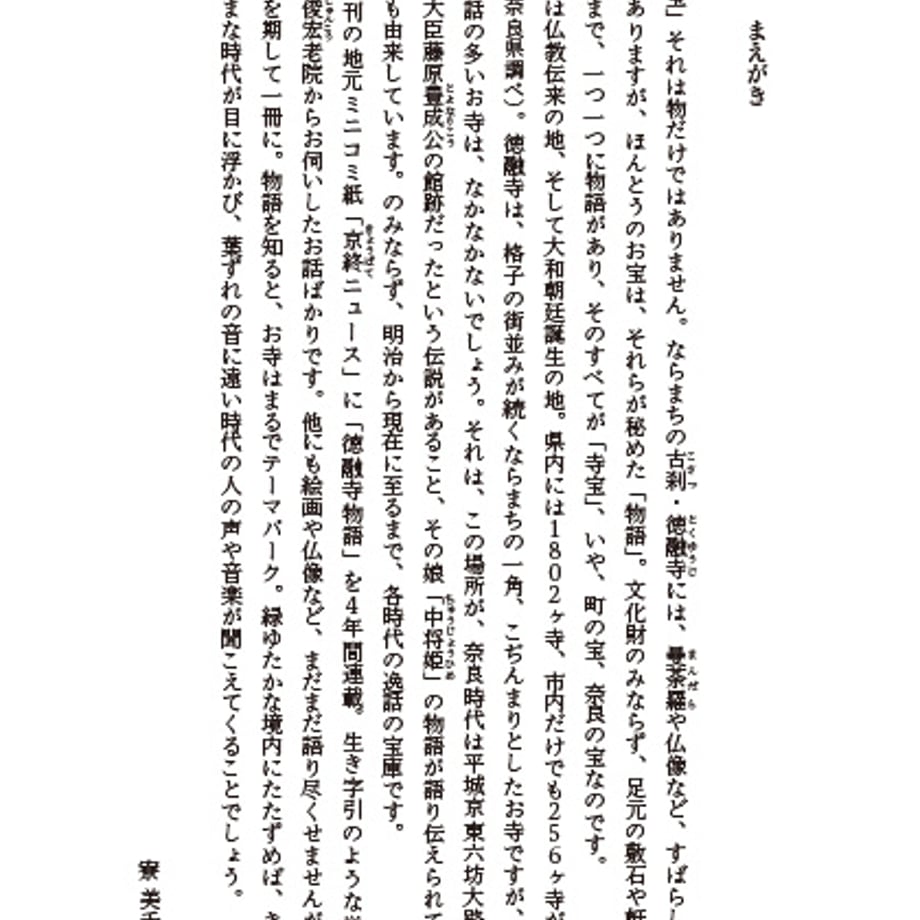 まえがき
宝」それは物だけではありません。ならまちの古刹・徳融寺には、曼荼羅や仏像など、すばらし
ありますが、ほんとうのお宝は、それらが秘めた「物語」。文化財のみならず、足元の敷石や軒
まで、一つ一つに物語があり、そのすべてが「寺宝」、いや、町の宝、奈良の宝なのです。
は仏教伝来の地、そして大和朝廷誕生の地。県内には1802ヶ寺、市内だけでも256ヶ寺が
奈良県調べ）。徳融寺は、格子の街並みが続くならまちの一角、こぢんまりとしたお寺ですが、
話の多いお寺は、なかなかないでしょう。それは、この場所が、奈良時代は平城京東六坊大路
大臣藤原豊成公の館跡だったという伝説があること、その娘「中将姫」の物語が語り伝えられて
も由来しています。のみならず、明治から現在に至るまで、各時代の逸話の宝庫です。
刊の地元ミニコミ紙「京終ニュース」に「徳融寺物語」を4年間連載。生き字引のような
俊宏老院からお伺いしたお話ばかりです。他にも絵画や仏像など、まだまだ語り尽くせませんが
を期して一冊に。物語を知ると、お寺はまるでテーマパーク。緑ゆたかな境内にたたずめば、さ
まな時代が目に浮かび、葉ずれの音に遠い時代の人の声や音楽が聞こえてくることでしょう。
寮 美千